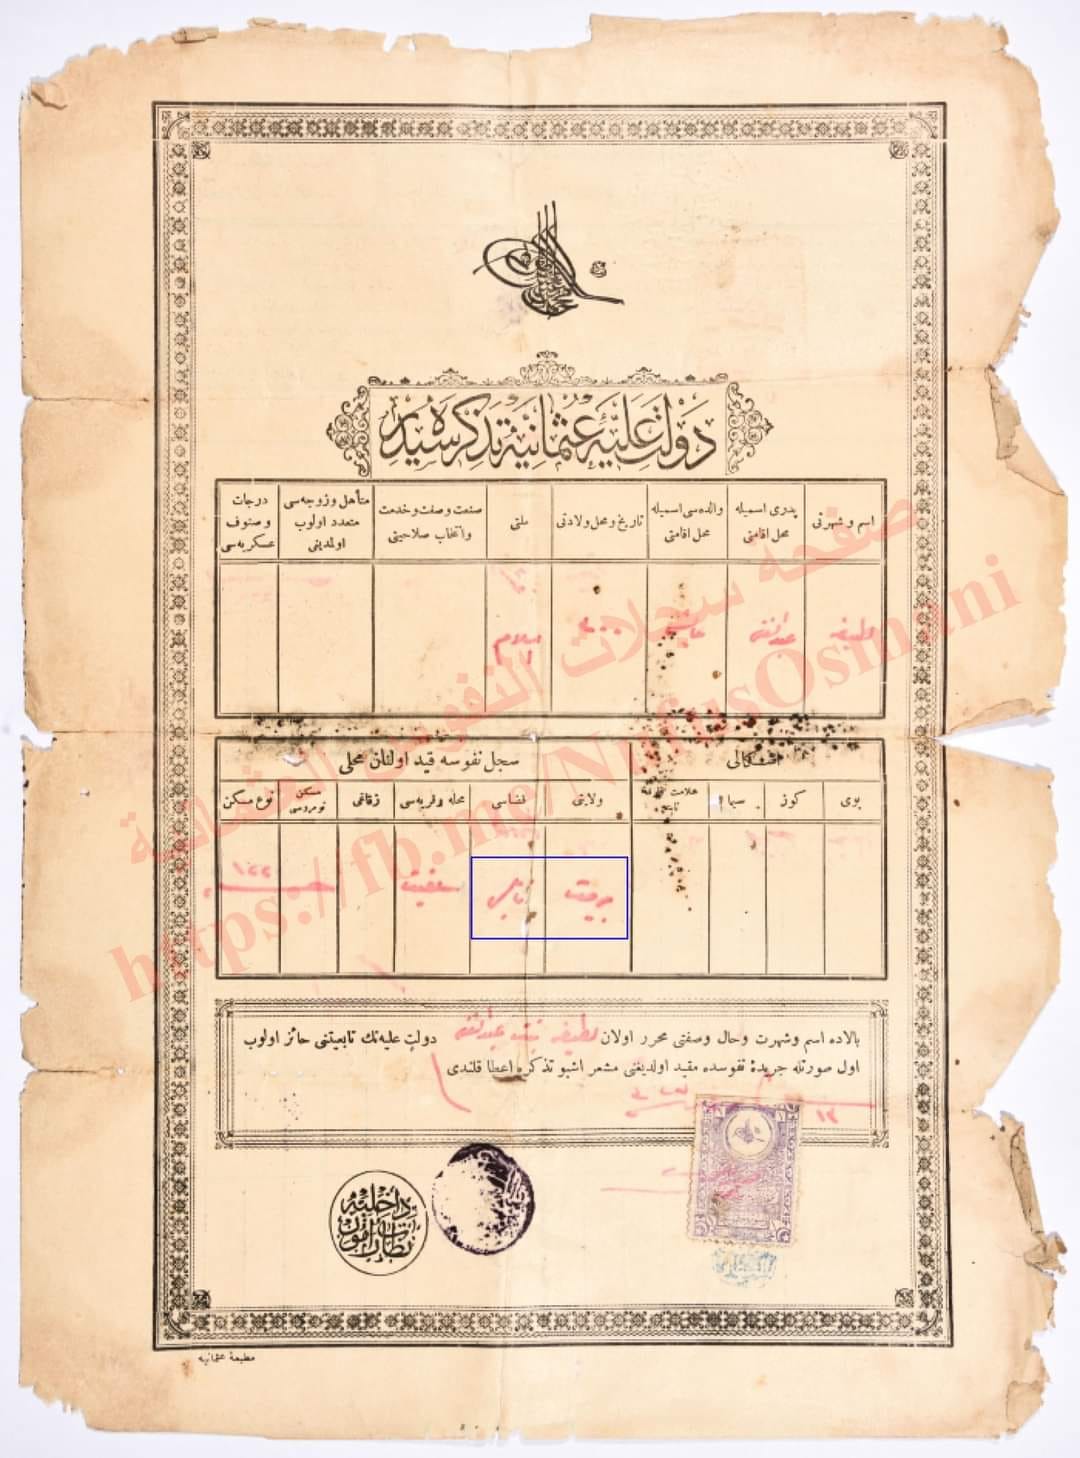 دولت علیهٔ عثمانیه تذکره سیدر
اسم و شهرتی
پدری اسمیله محل اقامتی
والده سی اسمیله محل اقامتی
تاریخ و محل ولادتی
ملتی
صنعت و صفت و خدمت و انتخاب صلاحیتی
متأهل و زوجه سی متعدد اولوب اولمدیغی
درجات و صنوف عسکریه سی
لطیفه
عبد الغنی
اسلام
اشکالی
سجل نفوسه قید اولنان محلی
بوی
کوز
سیما
علامت
ولایتی
قضاسی
محله و قریه سی
زقاغی
مسکن نومروسی
نوع مسکن
بیروت
نابلس
سلفیت
١٢٢
بالاده اسم و شهرت و حال و صفتی محرر اولان لطیفه بنت عبد الغنی دولت علیه نك تابعیتنی حائز اولوب
اول صورتله جریدهٔ نفوسده مقید اولدیغنی مشعر اشبو تذکره اعطا قلندی
داخلیه نظارت
مطبعهٔ عثمانیه
صفحه سجلات النفوس العثمانية
https://fb.me/NufusOsmani